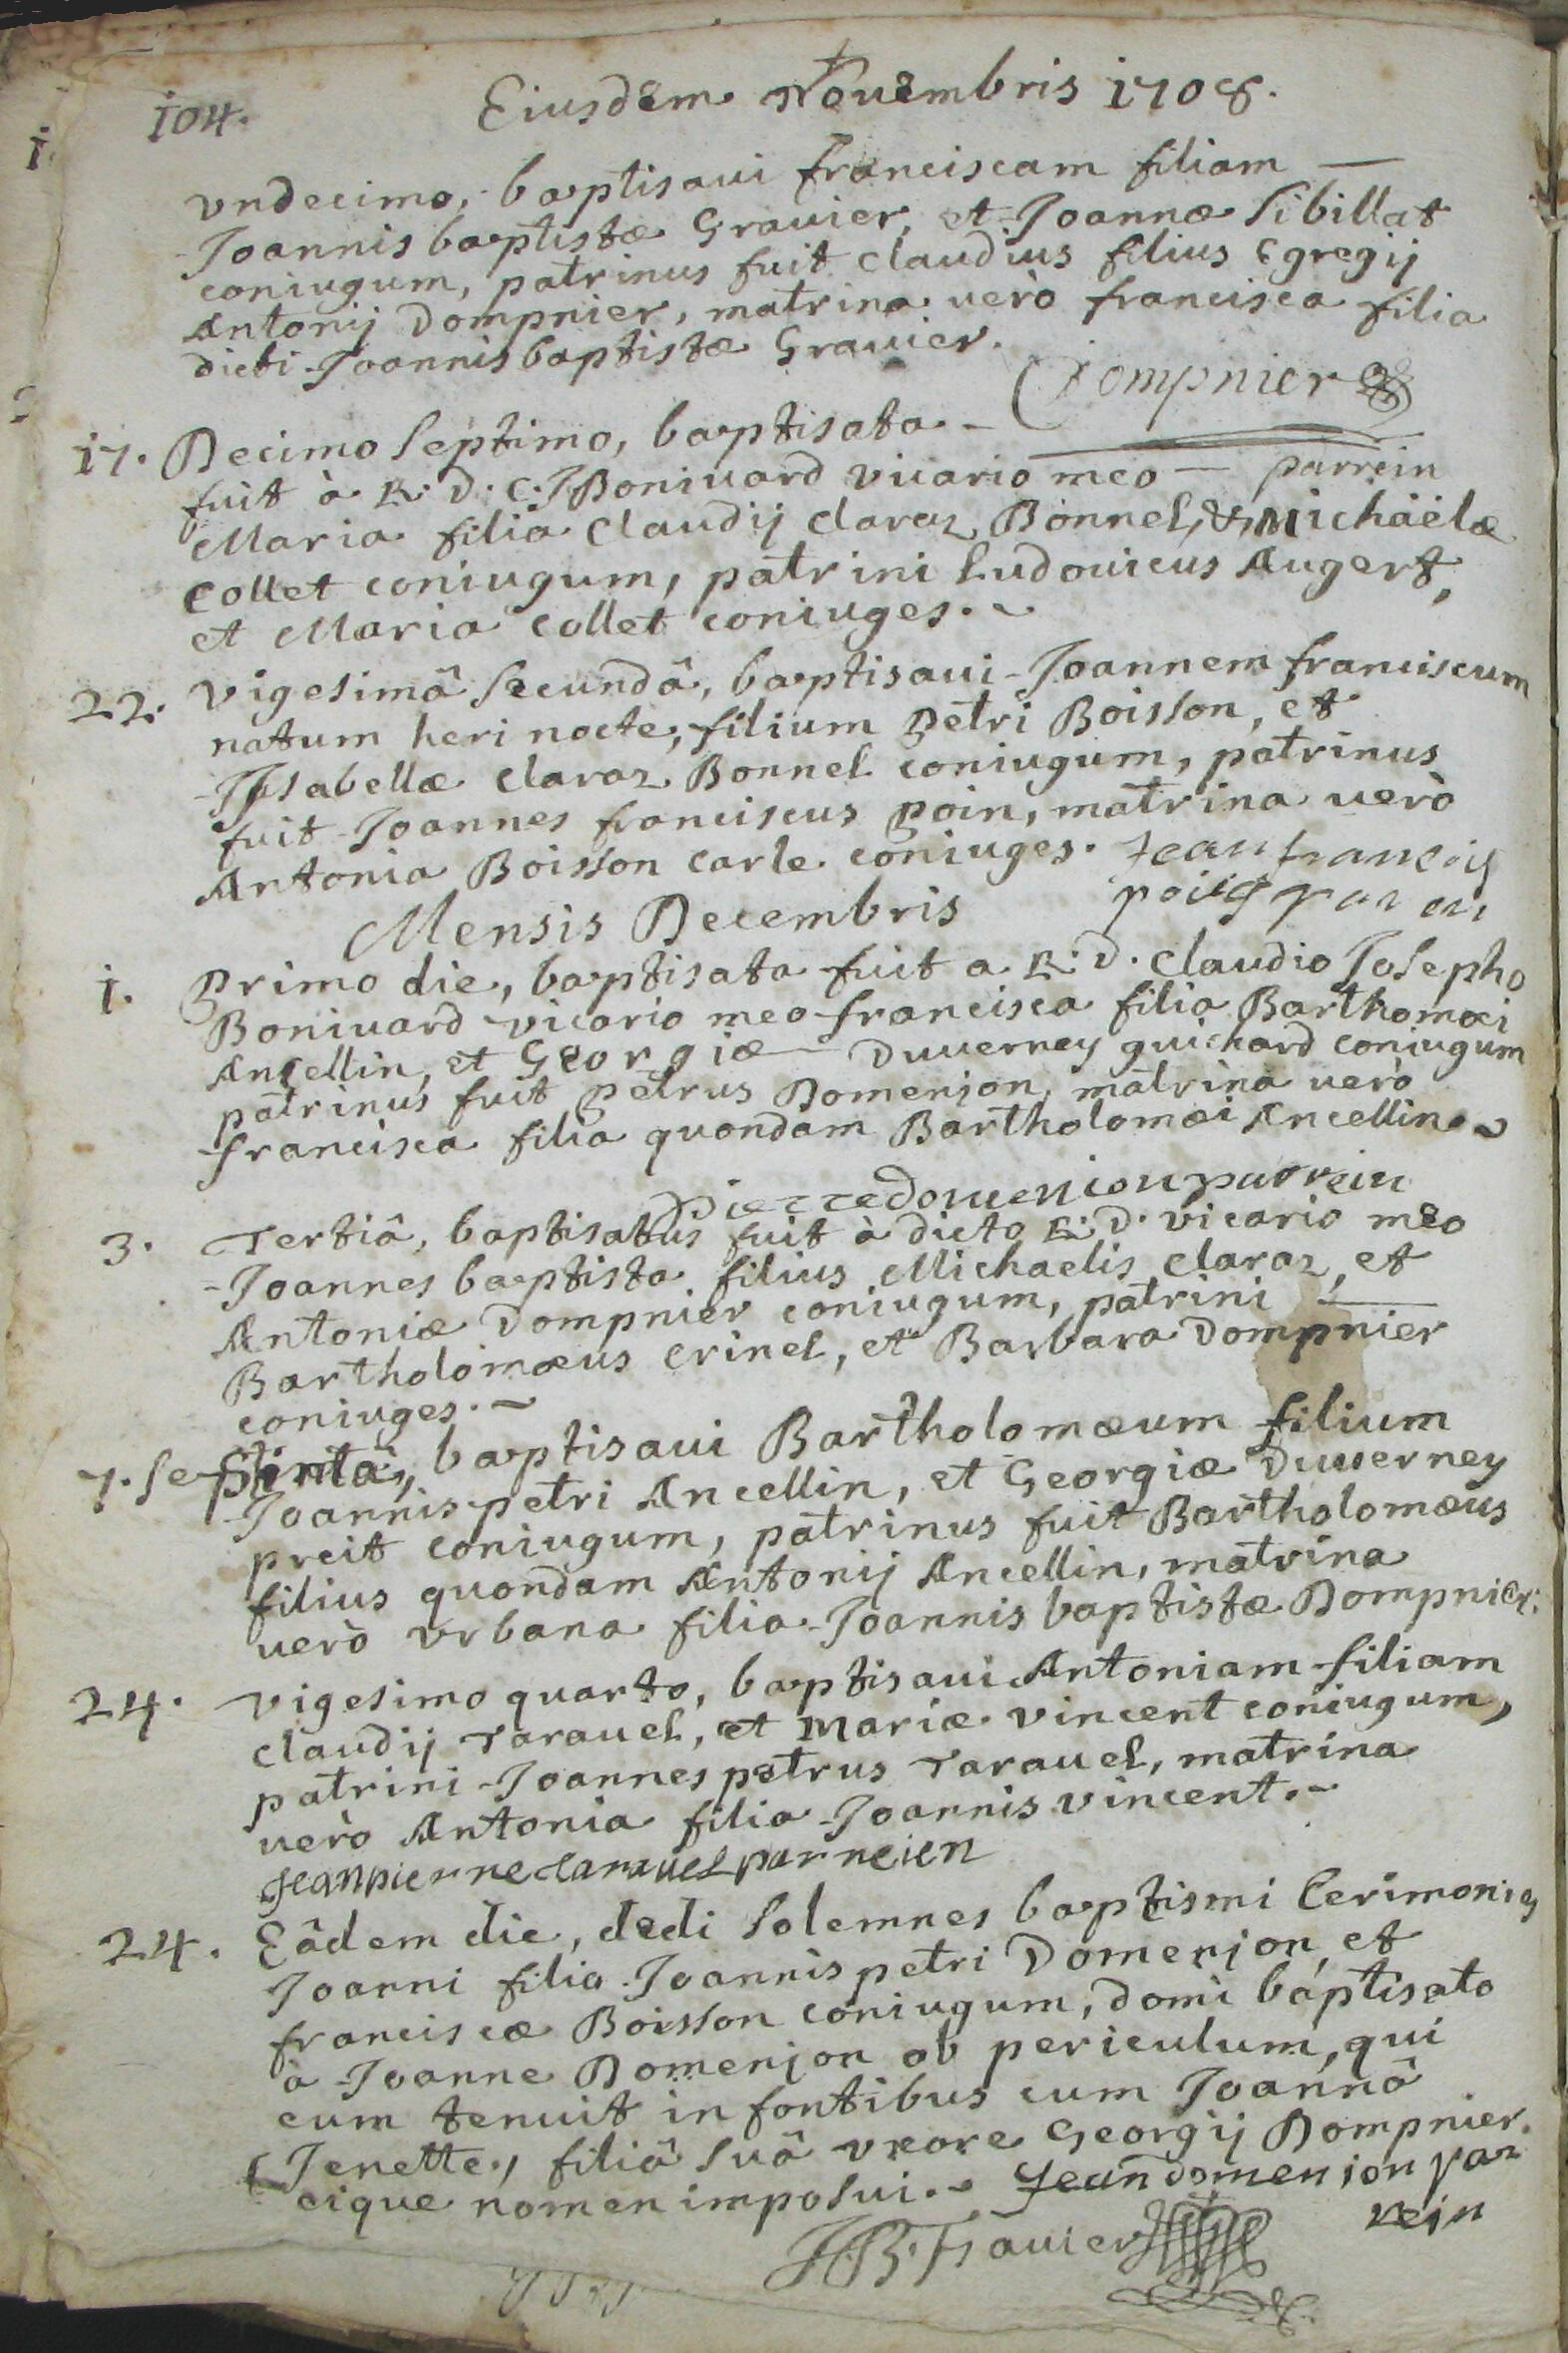 104. Eiusdem Nouembris 1708.
vndecimo, baptisaui franciscam filiam
Joannis baptistæ Grauier, et Joannæ Sibillat
coniugum, patrinus fuit claudius filius Egregij
Antonij Dompnier, matrina uerò francisca filia
dicti Joannis baptistæ Grauier.
Dompnier
parrein
17. Decimo septimo, baptisata
fuit à R. D. C. J Boniuard vicario meo
Maria filia Claudij claraz Bonnel, & Michäelæ
collet coniugum, patrini Ludouicus Augert,
et Maria collet coniuges.
22. vigesimâ secundâ, baptisaui Joannem franciscum
natum heri nocte, filium petri Boisson, et
Isabellæ claraz Bonnel coniugum, patrinus
fuit Joannes franciscus poin, matrina uerò
Antonia Boisson carle coniuges. Jean francois
Mensis Decembris
1. Primo die, baptisata fuit a R. D. Claudio Josepho
Boniuard vicario meo francisca filia Barthomæi
Ancellin, et Georgiæ Duuerney guichard coniugum
patrinus fuit petrus Domenjon, matrina uerò
francisca filia quondam Bartholomæi Ancellin.
pierre domenion parrein
3. Tertiâ, baptisatus fuit à dicto R. D. vicario meo
Joannes baptista filius Michaelis claraz, et
Antoniæ Dompnier coniugum, patrini
Bartholomæus crinel, et Barbara Dompnier
coniuges.
7. baptisaui Bartholomæum filium
Joannis petri Ancellin, et Georgiæ Duuerney
preit coniugum, patrinus fuit Bartholomæus
filius quondam Antonij Ancellin, matrina
uerò vrbana filia Joannis baptistæ Dompnier.
24. vigesimo quarto, baptisaui Antoniam filiam
claudij Tarauel, et Mariæ vincent coniugum,
patrini Joannes petrus Tarauel, matrina
uerò Antonia filia Joannis vincent.
Jean pierre tarauel parreien
24. Eâdem die, dedi solemnes baptismi Cerimonias
Joanni filio Joannis petri Domenjon, et
franciscæ Boisson coniugum, domi baptisato
à Joanne Domenjon ob periculum, qui
eum tenuit in fontibus cum Joannâ
Jenette, filiâ suâ vxore Georgij Dompnier.
eique nomen imposui. Jean domenion par
rein